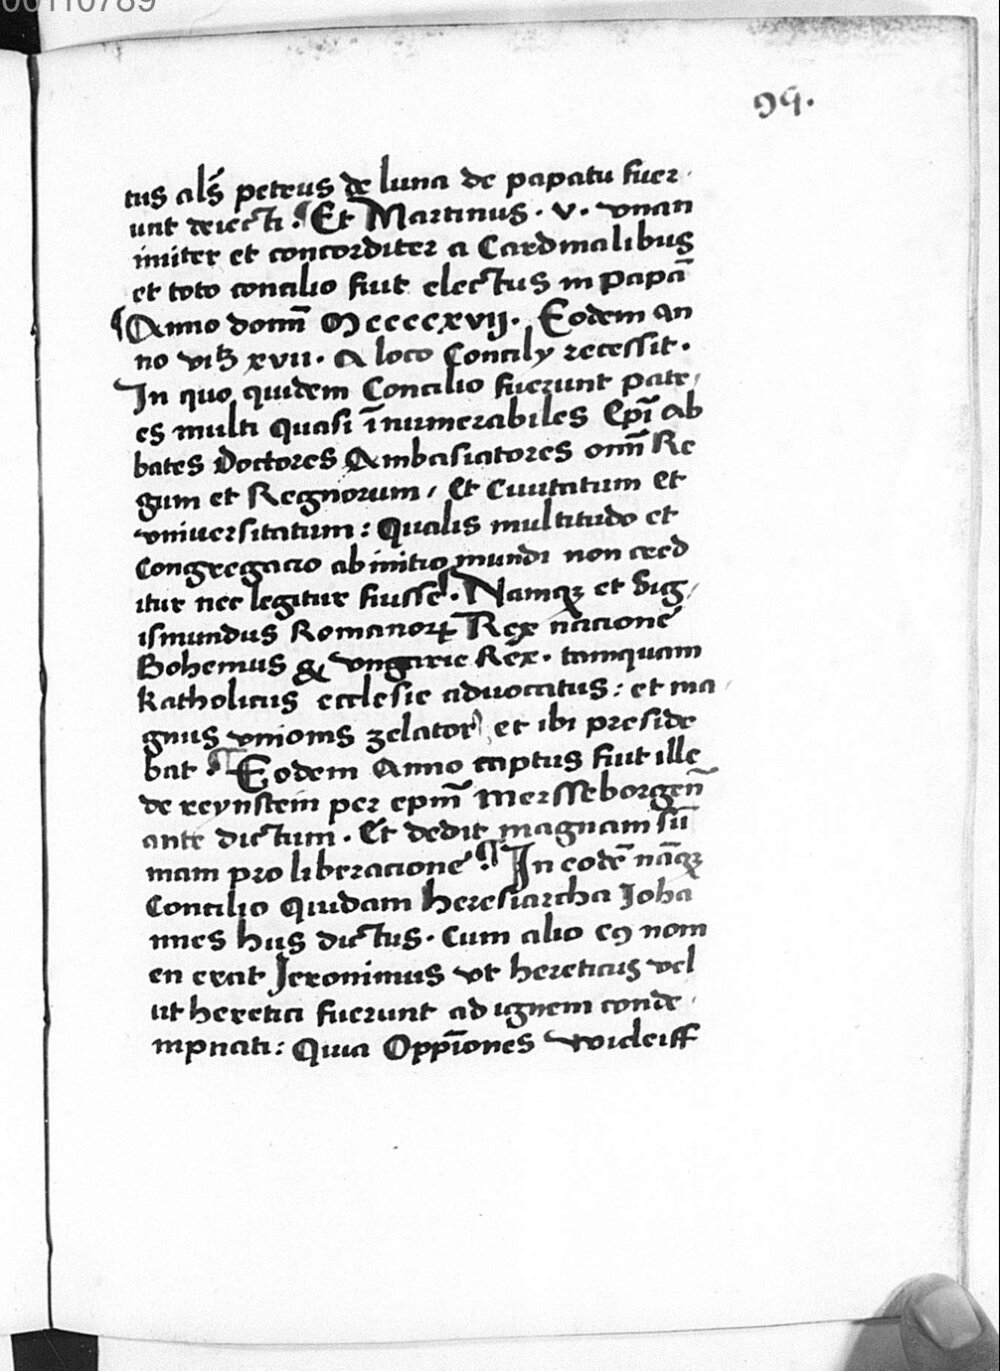 00110789
95.
tus als̄ petrus de luna de papatu fuer
unt deiecti. ¶ Et Martinus . v . vnan
imiter et concorditer a Cardinalibus
et toto concilio fuit electus in papā
¶ Anno domī Mccccxvij. Eodem An
no vꝫ xvii. A loco Concily recessit.
In quo quidem Concilio fuerunt patr,
es multi quasi īnumerabiles Ep̄i Ab
bates Doctores Ambasiatores om̄ Re
gum et Regnorum, Et Ciuitatum Et
vniuersitatum: Qualis multitudo et
Congregacio ab initio mundi non cred
itur nec legitur fuisse. Namqꝫ et Sig,
ismundus Romanoꝝ Rex nacione
Bohemus & vngarie Rex. tamquam
katholicus ecclesie aduocatus: et ma
gnus vnionis zelator, et ibi preside
bat. ¶ Eodem Anno captus fuit ille
de reynstein per ep̄m Mersseborgen̄
ante dictum. Et dedit magnam sū
mam pro liberacione ¶ In eodē nāqꝫ
Concilio Quidam heresiarcha Joha
nnes hus dictus. Cum alio cꝯ nom
en erat Jeronimus vt hereticus vel
ut heretici fuerunt ad ignem conde
mpnati: Quia Oppīones wicleiff